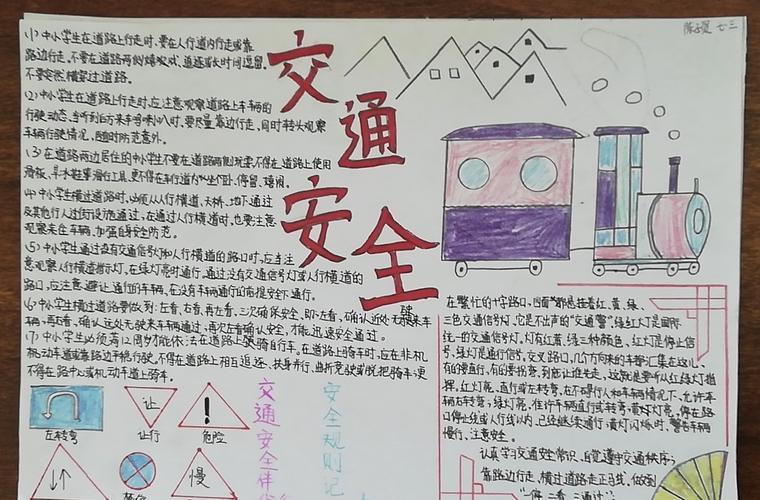 陈 七·三
交通安全
(1) 中小学生在道路上行走时,要在人行道内行走或靠
路边行走,不要在道路两侧嬉戏,追逐或长时间逗留,
不要突然横穿过道路。
(2) 中小学生在道路上行走时,应注意观察道路上车辆的
行驶动态,当听到后方来车鸣喇叭时,要尽量靠边行走,同时转头观察
车辆行驶情况,随时防范意外。
(3) 在道路两边居住的中小学生不要在道路两侧玩耍,不得在道路上使用
滑板、旱冰鞋等滑行工具,更不得在车行道内坐卧、停留、嬉闹。
(4) 中小学生横过道路时,必须从人行横道、天桥、地下通过
及其他行人过街设施通过,在通过人行横道时,也要注意
观察来往车辆,加强自身防范。
(5) 中小学生通过设有交通信号灯和人行横道的路口时,应当注
意观察人行横道指示灯,在绿灯亮时通行,通过没有交通信号灯或人行横道的
路口,应注意避让通行的车辆,在没有车辆通行的前提下通行。
(6) 中小学生横过道路要做到:左看,右看,再左看,三次确保安全,即:左看,确认近处无驶来车
辆,再右看,确认远处无驶来车辆通过,再次左看确认安全,才能迅速安全通过。
(7) 中小学生必须满12周岁才能依法在道路上骑自行车。在道路上骑车时,应在非机
机动车道或靠路边平稳行驶,不得在道路上相互追逐、扶身并行、曲折竞驶或脱把骑车,更
不得在路中心或机动车道上骑车。
在繁忙的十字路口,四面都悬挂着红、黄、绿、
三色交通信号灯,它是不出声的“交通警”,绿红灯是国际
统一的交通信号灯。灯有红黄绿三种颜色,红灯是停止信
号,绿灯是通行信号,交叉路口,几个方向来的车都汇集在这儿,
有的要直行,有的要拐弯,到底让谁先走,这就是要听从红绿灯指
挥,红灯亮,直行或左转弯,在不碍行人和车辆情况下,允许车
辆右转弯;绿灯亮,准许车辆直行或转弯;黄灯灯亮,停在路
口停止线或人行线以内,已经继续通行;黄灯闪烁时,警告车辆
慢行、注意安全。
认真学习交通安全常识,自觉遵守交通秩序;
靠路边行走,横过道路走斑马线,做到
“一停二看三通过”
左转弯
让
让行
!
危险
禁停
慢
交通安全伴
安全规则记